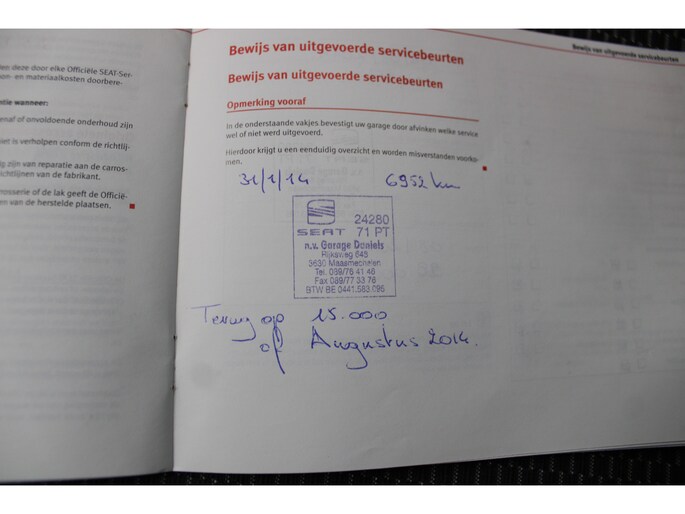 en deze door elke Officiële SEAT-Ser-
on- en materiaalkosten doorbere-
ntie wanneer:
enaf of onvoldoende onderhoud zijn
iet is verholpen conform de richtlij-
ig zijn van reparatie aan de carros-
chtlijnen van de fabrikant.
rosserie of de lak geeft de Officië-
en van de herstelde plaatsen.
Bewijs van uitgevoerde servicebeurten
Bewijs van uitgevoerde servicebeurten
Opmerking vooraf
In de onderstaande vakjes bevestigt uw garage door afvinken welke service
wel of niet werd uitgevoerd.
Hierdoor krijgt u een eenduidig overzicht en worden misverstanden voorko-
men.
31/1/14 6952 km
24280
SEAT 71 PT
n.v. Garage Daniels
Rijksweg 645
3630 Maasmechelen
Tel. 089/76 41 46
Fax 089/77 33 78
BTW BE 0441.583.095
Terug op 15.000
of Augustus 2014.
Bewijs van uitgevoerde servicebeurten